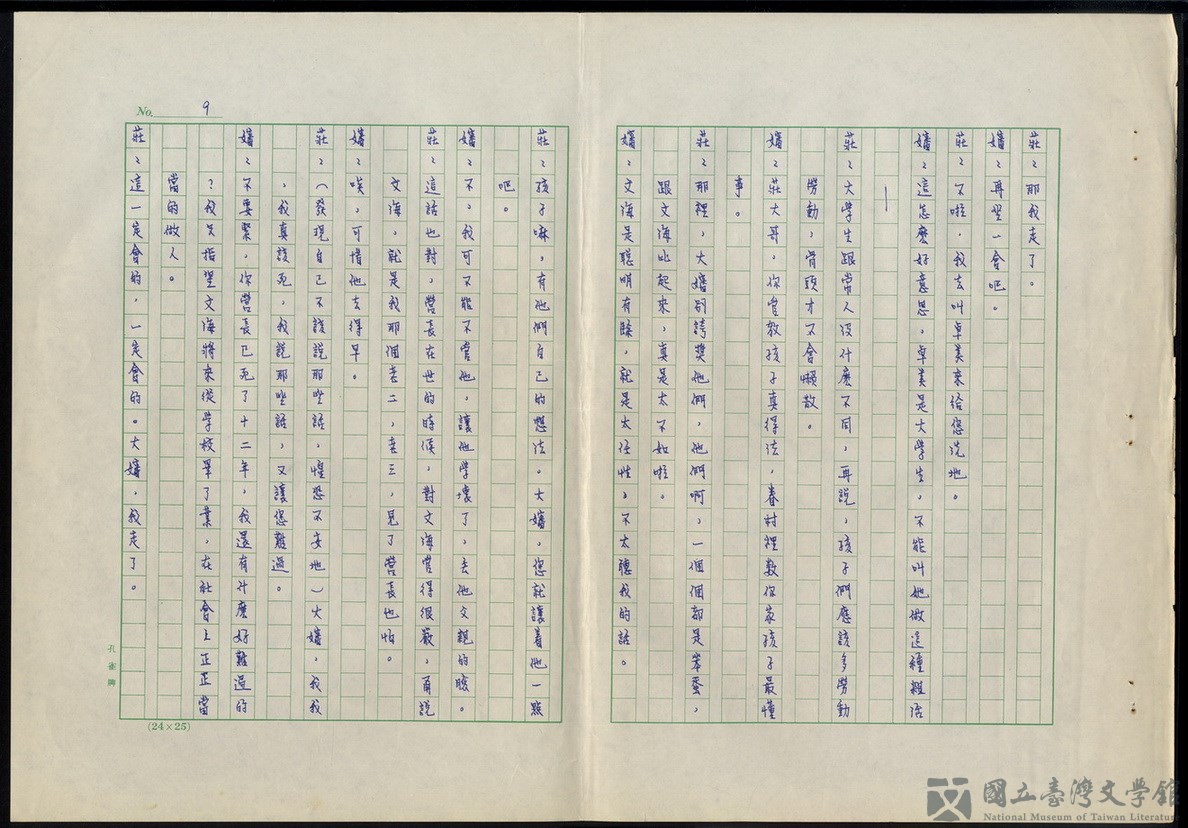 莊：那我走了。
嬸：再坐一會吧。
莊：不啦，我去叫卓美來給您洗地。
嬸：這怎麼好意思，卓美是大學生，不能叫她做這種粗活
—
莊：大學生跟常人沒什麼不同，再說，孩子們應該多勞動
勞動，骨頭才不會懶散。
嬸：莊大哥，你管教孩子真得法，眷村裡數你家孩子最懂
事。
莊：那裡，大嬸別誇獎他們，他們啊，一個個都是笨蛋，
跟文海比起來，真是太不如啦。
嬸：文海是聰明有餘，就是太任性，不太聽我的話。
No. 9
莊：孩子嘛，有他們自己的想法。大嬸，您就讓着他一點
吧。
嬸：不，我可不能不管他，讓他學壞了，丟他父親的臉。
莊：這話也對，營長在世的時候，對文海管得很嚴，甭說
文海，就是我那個老二，老三，見了營長也怕。
嬸：唉，可惜他去得早。
莊：（發現自己不該說那些話，惶恐不安地）大嬸，我我
，我真該死，我說那些話，又讓您難過。
嬸：不要緊，你營長已死了十二年，我還有什麼好難過的
？我只指望文海將來從學校畢了業，在社會上正正當
當的做人。
莊：這一定會的，一定會的。大嬸，我走了。
孔雀牌
(24×25)
國立臺灣文學館
National Museum of Taiwan Literature